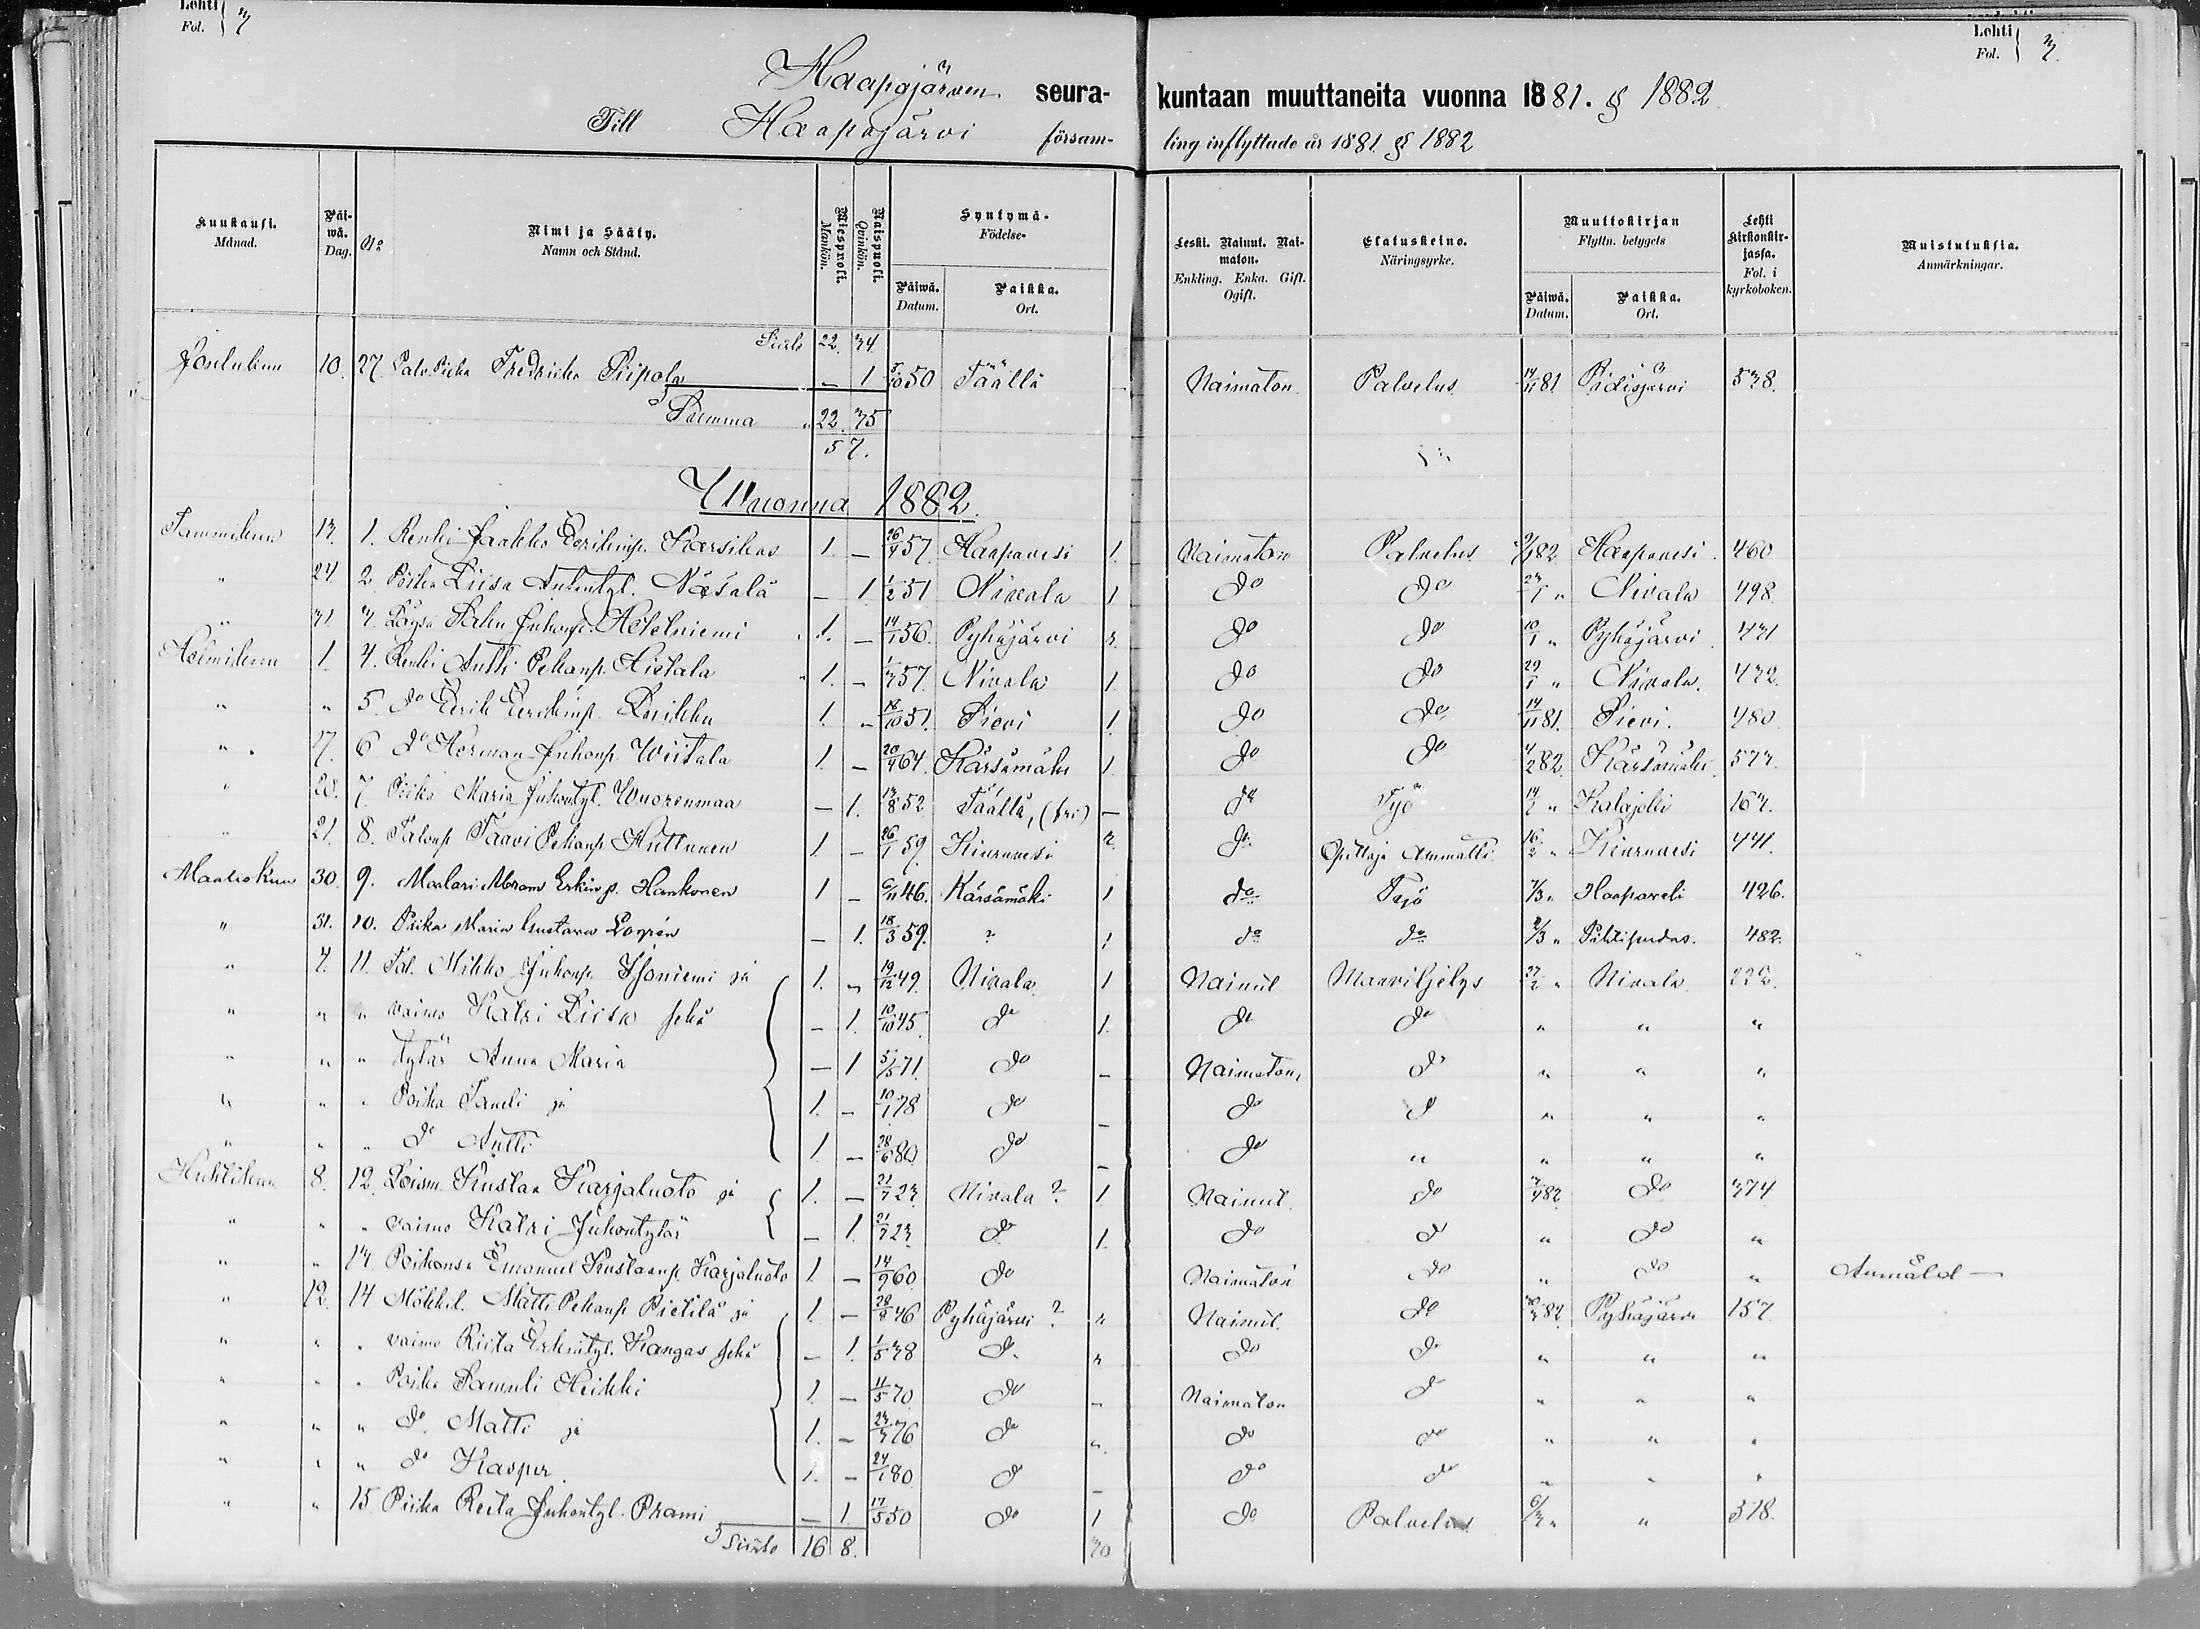 Lehti Fol. 3
Lehti Fol. 3.
Haapajärven seurakuntaan muuttaneita vuonna 1881. & 1882
Till Haapajärvi församling inflyttade år 1881 & 1882
Kuukausi. Månad. Päiwä. Dag. No Nimi ja Sääty. Namn och Stånd. Miespuoli. Mankön. Naispuoli. Qvinkön. Syntymä- Födelse- Päiwä. Datum. Paikka. Ort. Leski. Nainut. Naimaton. Enkling. Enka. Gift. Ogift. Elatuskeino. Näringsyrke. Muuttokirjan Flyttn. betygets Päiwä. Datum. Paikka. Ort. Lehti kirkonkirjassa. Fol. i kyrkoboken. Muistutuksia. Anmärkningar.
Siirto 22. 34.
Joulukuu 10. 27. Palv. Piika Fredriika Piipola — 1 5/10 50 Täällä — Naimaton. Palvelus 14/11 81. Pidisjärvi 538.
Summa 22. 35
57.
Wuonna 1882.
Tammikuu 13. 1. Renki Jaakko Eerikinp. Karsikas 1. — 26/4 57. Haapavesi 1. Naimaton Palvelus 82. Haapavesi. 460
" 24 2. Piika Liisa Antintyt. Näsälä — 1 1/2 51 Nivala 1 do do 23/1 " Nivala 498.
" 31 3. Juhonp. 1. — 14/1 56. Pyhäjärvi 2 do do 10/1 " Pyhäjärvi. 431
Helmikuu 1. 4. Renki Antti Pekanp. Hietala 1. — 1/3 57. Nivala 1. do do 29/1 " Nivala. 432.
" " 5. do Eerik Eerikinp. 1. " 18/10 51. Sievi 1. do do 14/11 81. Sievi. 480.
" 17. 6 do Herman Juhonp. Wiitala 1. — 20/4 64. Kärsämäki 1. do do 4/2 82. Kärsämäki. 573.
" 20. 7. Piika Maria Juhontyt. Wuorenmaa — 1. 13/8 52 Täällä, — do Työ " Kalajoki 163.
" 21. 8. Talonp. Taavi Pekanp. Huttunen 1. — 26/1 59. Kiuruvesi 2. do Opettaja Ammatti 16/2 " Kiuruvesi 441.
Maaliskuu 30. 9. Maalari Abram Erkinp. Hankonen 1 — 6/11 46. Kärsämäki 1 do Työ 7/3 " Haapavesi 426.
" 31. 10. Piika Maria Gustava — 1. 18/3 59. ? 1 do do 2/3 " Pihtipudas. 482.
" 4. 11. Tal. Mikko Juhonp. Isoniemi ja 1. " 19/12 49. Nivala 1 Nainut Maaviljelys 27/2 " Nivala 222.
" " " vaimo Katri Liisa sekä — 1. 10/10 45 do 1. do do " " "
" " " tytär Anna Maria — 1 5/5 71. do — Naimaton, do " " "
" " " Poika Taneli ja 1. — 10/1 78 do — do do " " "
" " " do Antti 1 — 28/6 80 do — do " " " "
Huhtikuu 8. 12. Loism. Kustaa Karjaluoto ja 1. — 21/7 23. Nivala ? 1. Nainut. do 3/4 82 do 374
" " " vaimo Katri Juhontytär — 1 21/7 23. do 1. do do " do "
" " 13. Poikansa Emanuel Kustaanp. Karjaluoto 1 — 14/9 60. do Naimaton do " do " Anmäld —
" 12. 14 Mökkil. Matti Pekanp. Pietilä ja 1. — 28/8 46 Pyhäjärvi ? 2 Nainut. do 82. Pyhäjärvi 157.
" " " vaimo Riita Erkintyt. Kangas sekä — 1. 1/5 38 do 2 do do " " "
" " " Poika Samuli Heikki 1. — 11/5 70 do — Naimaton do " " "
" " " do Matti ja 1. — 23/3 76 do " do do " " "
" " " do Kasper. 1. — 24/1 80 do — do do " " "
" " 15. Piika Reeta Juhontyt. Prami — 1. 17/5 50 do 1 do Palvelus 6/3 " " 378.
Siirto 16 8. 30